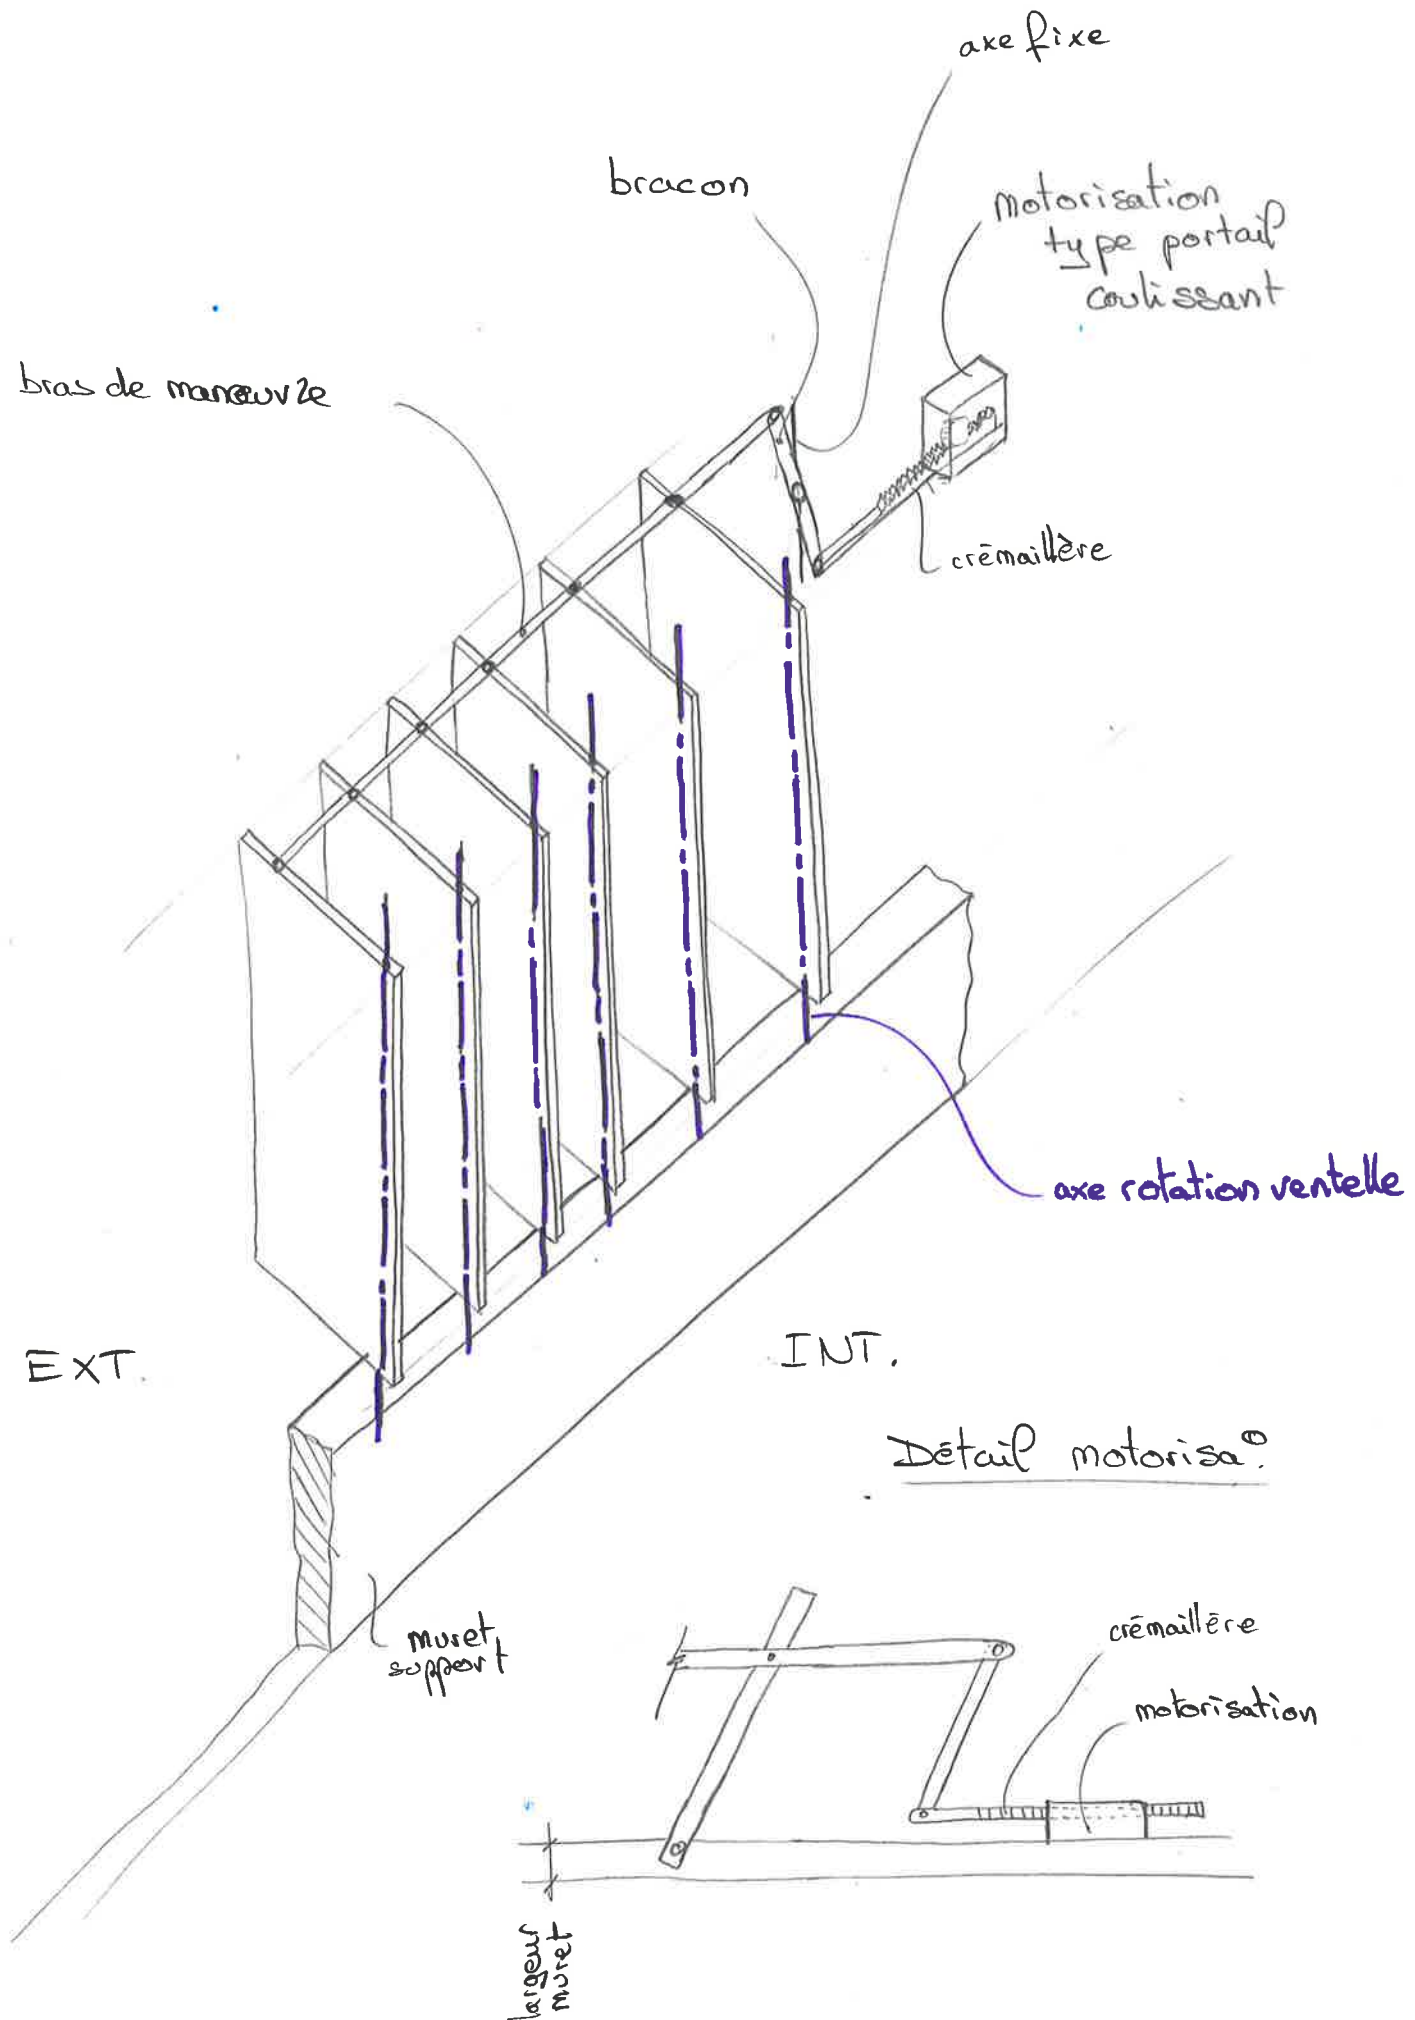 axe fixe
bracon
motorisation
type portail
coulissant
bras de manœuvre
crémaillère
axe rotation ventelle
EXT.
INT.
Détail motorisa°.
muret
support
crémaillère
motorisation
largeur
muret